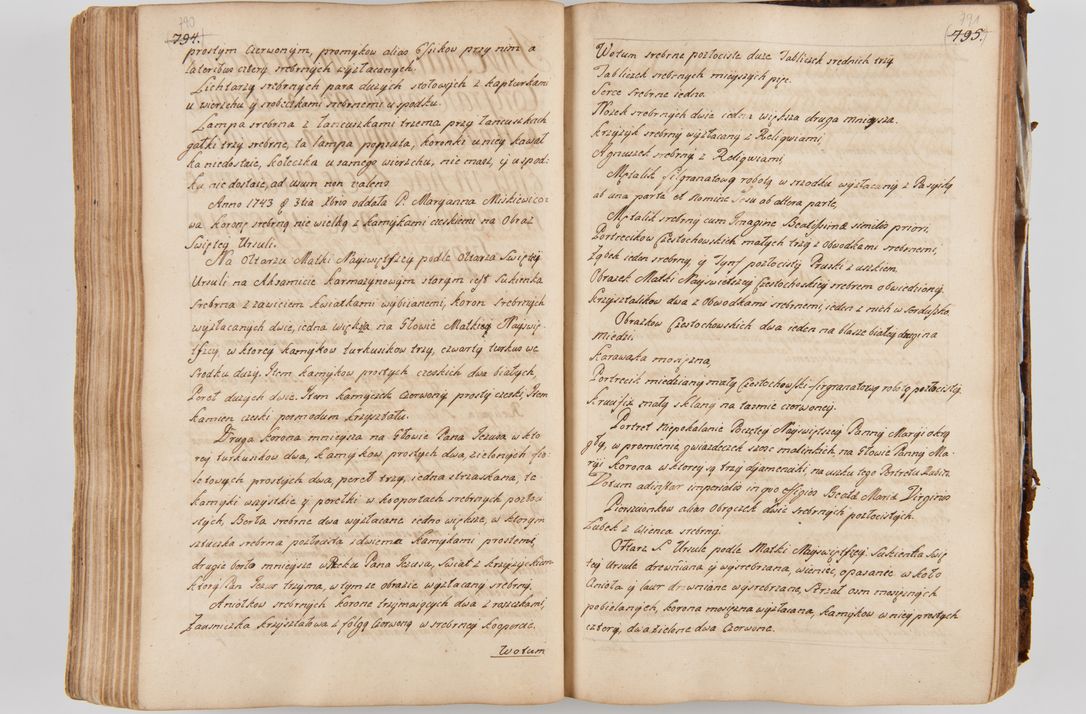 790
794.
prostym czerwonym, promykow alias Głosikow przy nim a
lateribus cztery srebrnych wyzłacanych.
Lichtarzy srebrnych para duzych stołowych z kapturkami
u wierzchu y srobeczkami srebrnemi u spodku.
Lampa srebrna z łancuszkami trzema przy łancuszkach
gałki trzy srebrne, ta lampa popsuta, koronki u niey kawał
ka niedostaie, koteczka u samego wierzchu, nie masz, y u spod-
ku nie dostaie, ad usum non valens.
Anno 1743 3tia Xbris oddała P. Maryanna Miskiewiczo
wa koronę srebrną nie wielką z kamykami czeskiemi na Obraz
Swiętey Ursuli.
Na Ołtarzu Matki Nayswiętszey podle Ołtarza Swiętey
Ursuli na Aksamicie karmazynowym starym iest Sukienka
srebrna z zawiciem kwiatkami wybijanemi, koron srebrnych
wyzłacanych dwie, iedna większa na Głowie Matki Nayswię-
tszey, w ktorey kamykow turkusikow trzy, czwarty turkus we
srodku duzy. Item kamykow prostych czeskich dwa białych,
Pereł duzych dwie. Item kamyczek czerwony prosty czeski, Item
kamien czeski per modum krzyształu.
Druga korona mnieysza na Głowie Pana Jezusa w kto
rey turkusikow dwa, kamykow prostych dwa, zielonych fio-
letowych prostych dwa, pereł trzy, iedna strzaskana, te
kamyki wszystkie y perełki w kooportach srebrnych pozłoci
stych, Berła srebrne dwa wyzłacane iedno większe, w ktorym
sztuczka srebrna pozłocista z dwiema kamykami prostemi,
drugie berło mnieysze w Ręku Pana Jezusa, swiat z krzyzykiem
ktory Pan Jezus trzyma, w tym ze obrazie wyzłacany srebrny.
Aniołkow srebrnych koronę trzymaiących dwa z raszkami,
Zausniczka krzyształowa z folgą czerwoną w srebrney kooporcie.
Wotum
791
795.
Wotum srebrne pozłociste duze Tabliczek srednich trzy
Tabliczek srebrnych mieyszych pięc.
Serce srebrne iedno.
Nozek srebrnych dwie iedna większa druga mnieysza.
krzyzyk srebrny wyzłacany z Religwiami,
Agnuszek srebrny z Religwiami,
Mętalik filgranatową robotą w srzodku wyzłacany z Passyiką
ab una parte et Nomine Jesu ab altera parte,
Mętalik srebrny cum Imagine Beatissimæ similis priori,
Portrecikow Częstochowskich małych trzy z obwodkami srebrnemi,
Ząbek ieden srebrny, y Tynf pozłocisty Pruski z uszkiem
Obrazek Matki Nayswiętszey Częstochoskiey srebrem obwiedziony.
Krzyształikow dwa z Obwodkami srebrnemi, ieden z nich w serduszko.
Obrazkow Częstochowskich dwa ieden na blasze białey drugi na
miedzi.
Karawaka mosięzna,
Portrecik miedziany mały Częstochowski firgranatową robotą pozłocisty.
Krucifix mały sklany na tasmie czerwoney.
Portret Niepokalanie Poczętey Nayswiętszey Panny Maryi okrą
gły, w promienie, gwiazdeczek szesc malinkich na Głowie Panny Ma-
ryi korona w ktorey są trzy dyamenciki, na uszku tego Portretu Rubin.
Votum ad instar imperialis in quo effigies Beatæ Mariæ Virginis
Pierscionkow alias Obrączek dwie srebrnych pozłocistych.
Lubek z wienca srebrny.
Ołtarz S. Ursule podle Matki Nayswiętszey. Sukienka Swię
tey Ursule drewniana y wysrebrzana, wieniec, opasanie w koło
Anioła y laur drewniane wysrebrzane, Strzał osm mosięznych
pobielanych, korona mosięzna wyzłacana, kamykow w niey prostych
cztery, dwa zielone dwa czerwone.